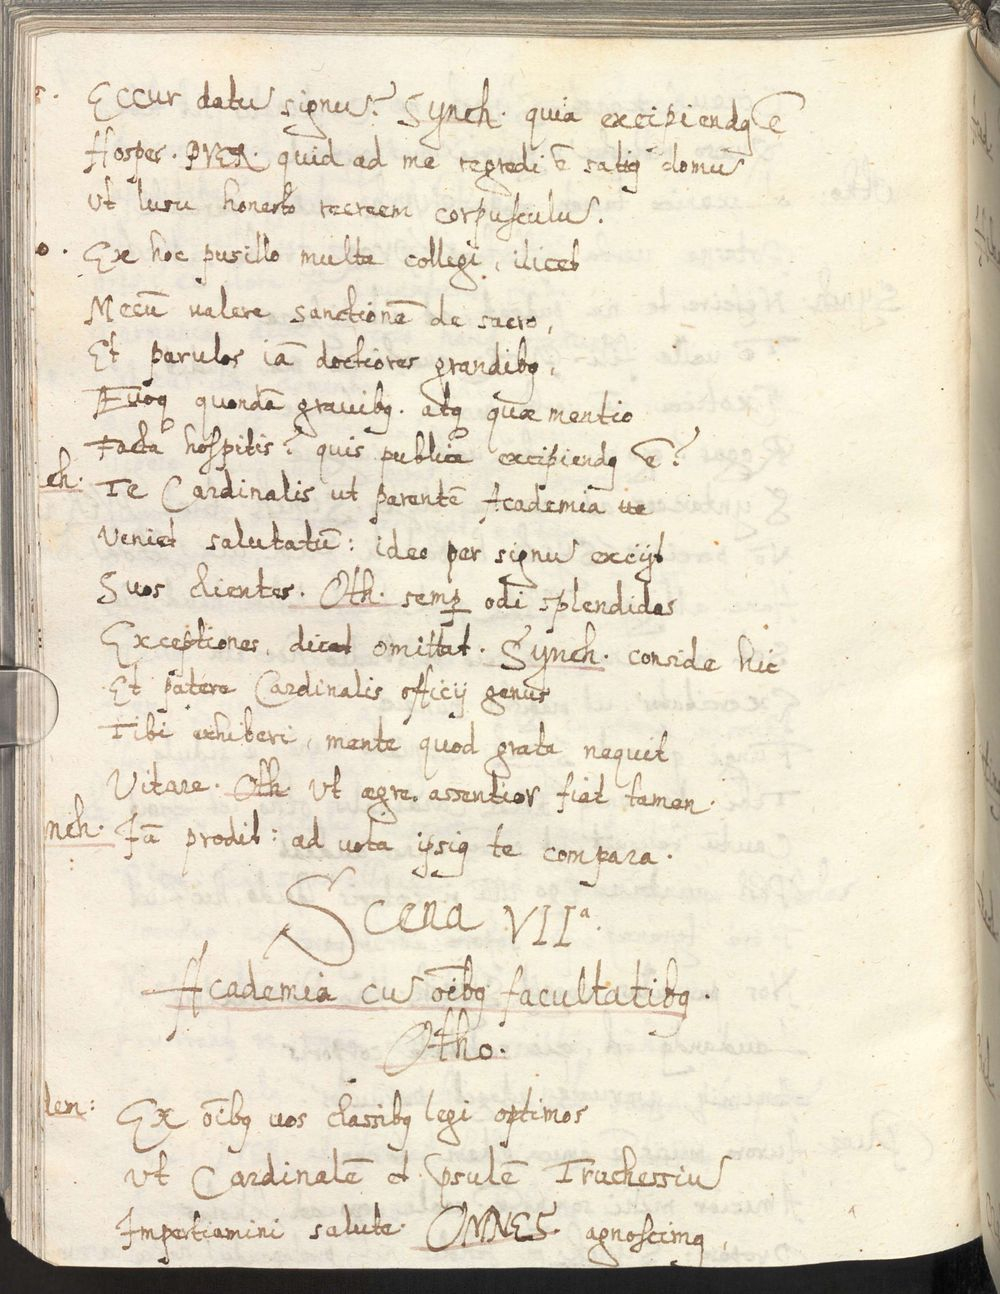 s. Eccur datū signū? Synch. quia excipiendꝰ ē
Hospes. PVER. quid ad me regredi ē satiꝰ domū
Ut lusu honesto recreem corpusculū.
o. Ex hoc pusillo multa collegi, ilicet
Mecū valere sanctionē de sacro,
Et parulos iā doctiores grandibꝰ,
Æuoq quondā grauibꝰ. atq quæ mentio
Facta hospitis? quis publice excipiendꝰ ē?
ch. Te Cardinalis ut parentē Academia
Veniet salutatū: ideo per signū excijt
Suos clientes. Oth. semꝑ odi splendidas
Exceptiones, dicat omittat. Synch. conside hic
Et patere Cardinalis officij genus
Tibi exhiberi, mente quod grata nequit
Vitare. Oth. Ut ægre assentior fiat tamen.
nch. Jā prodit: ad vota ipsiꝰ te compara.
Scena VIIª.
Academia cū oībꝰ facultatibꝰ.
Otho.
dem: Ex oībꝰ uos classibꝰ legi optimos
Ut Cardinalē et Psulē Truchessiū
Impertiamini salute. OMNES. agnoscimꝰ,